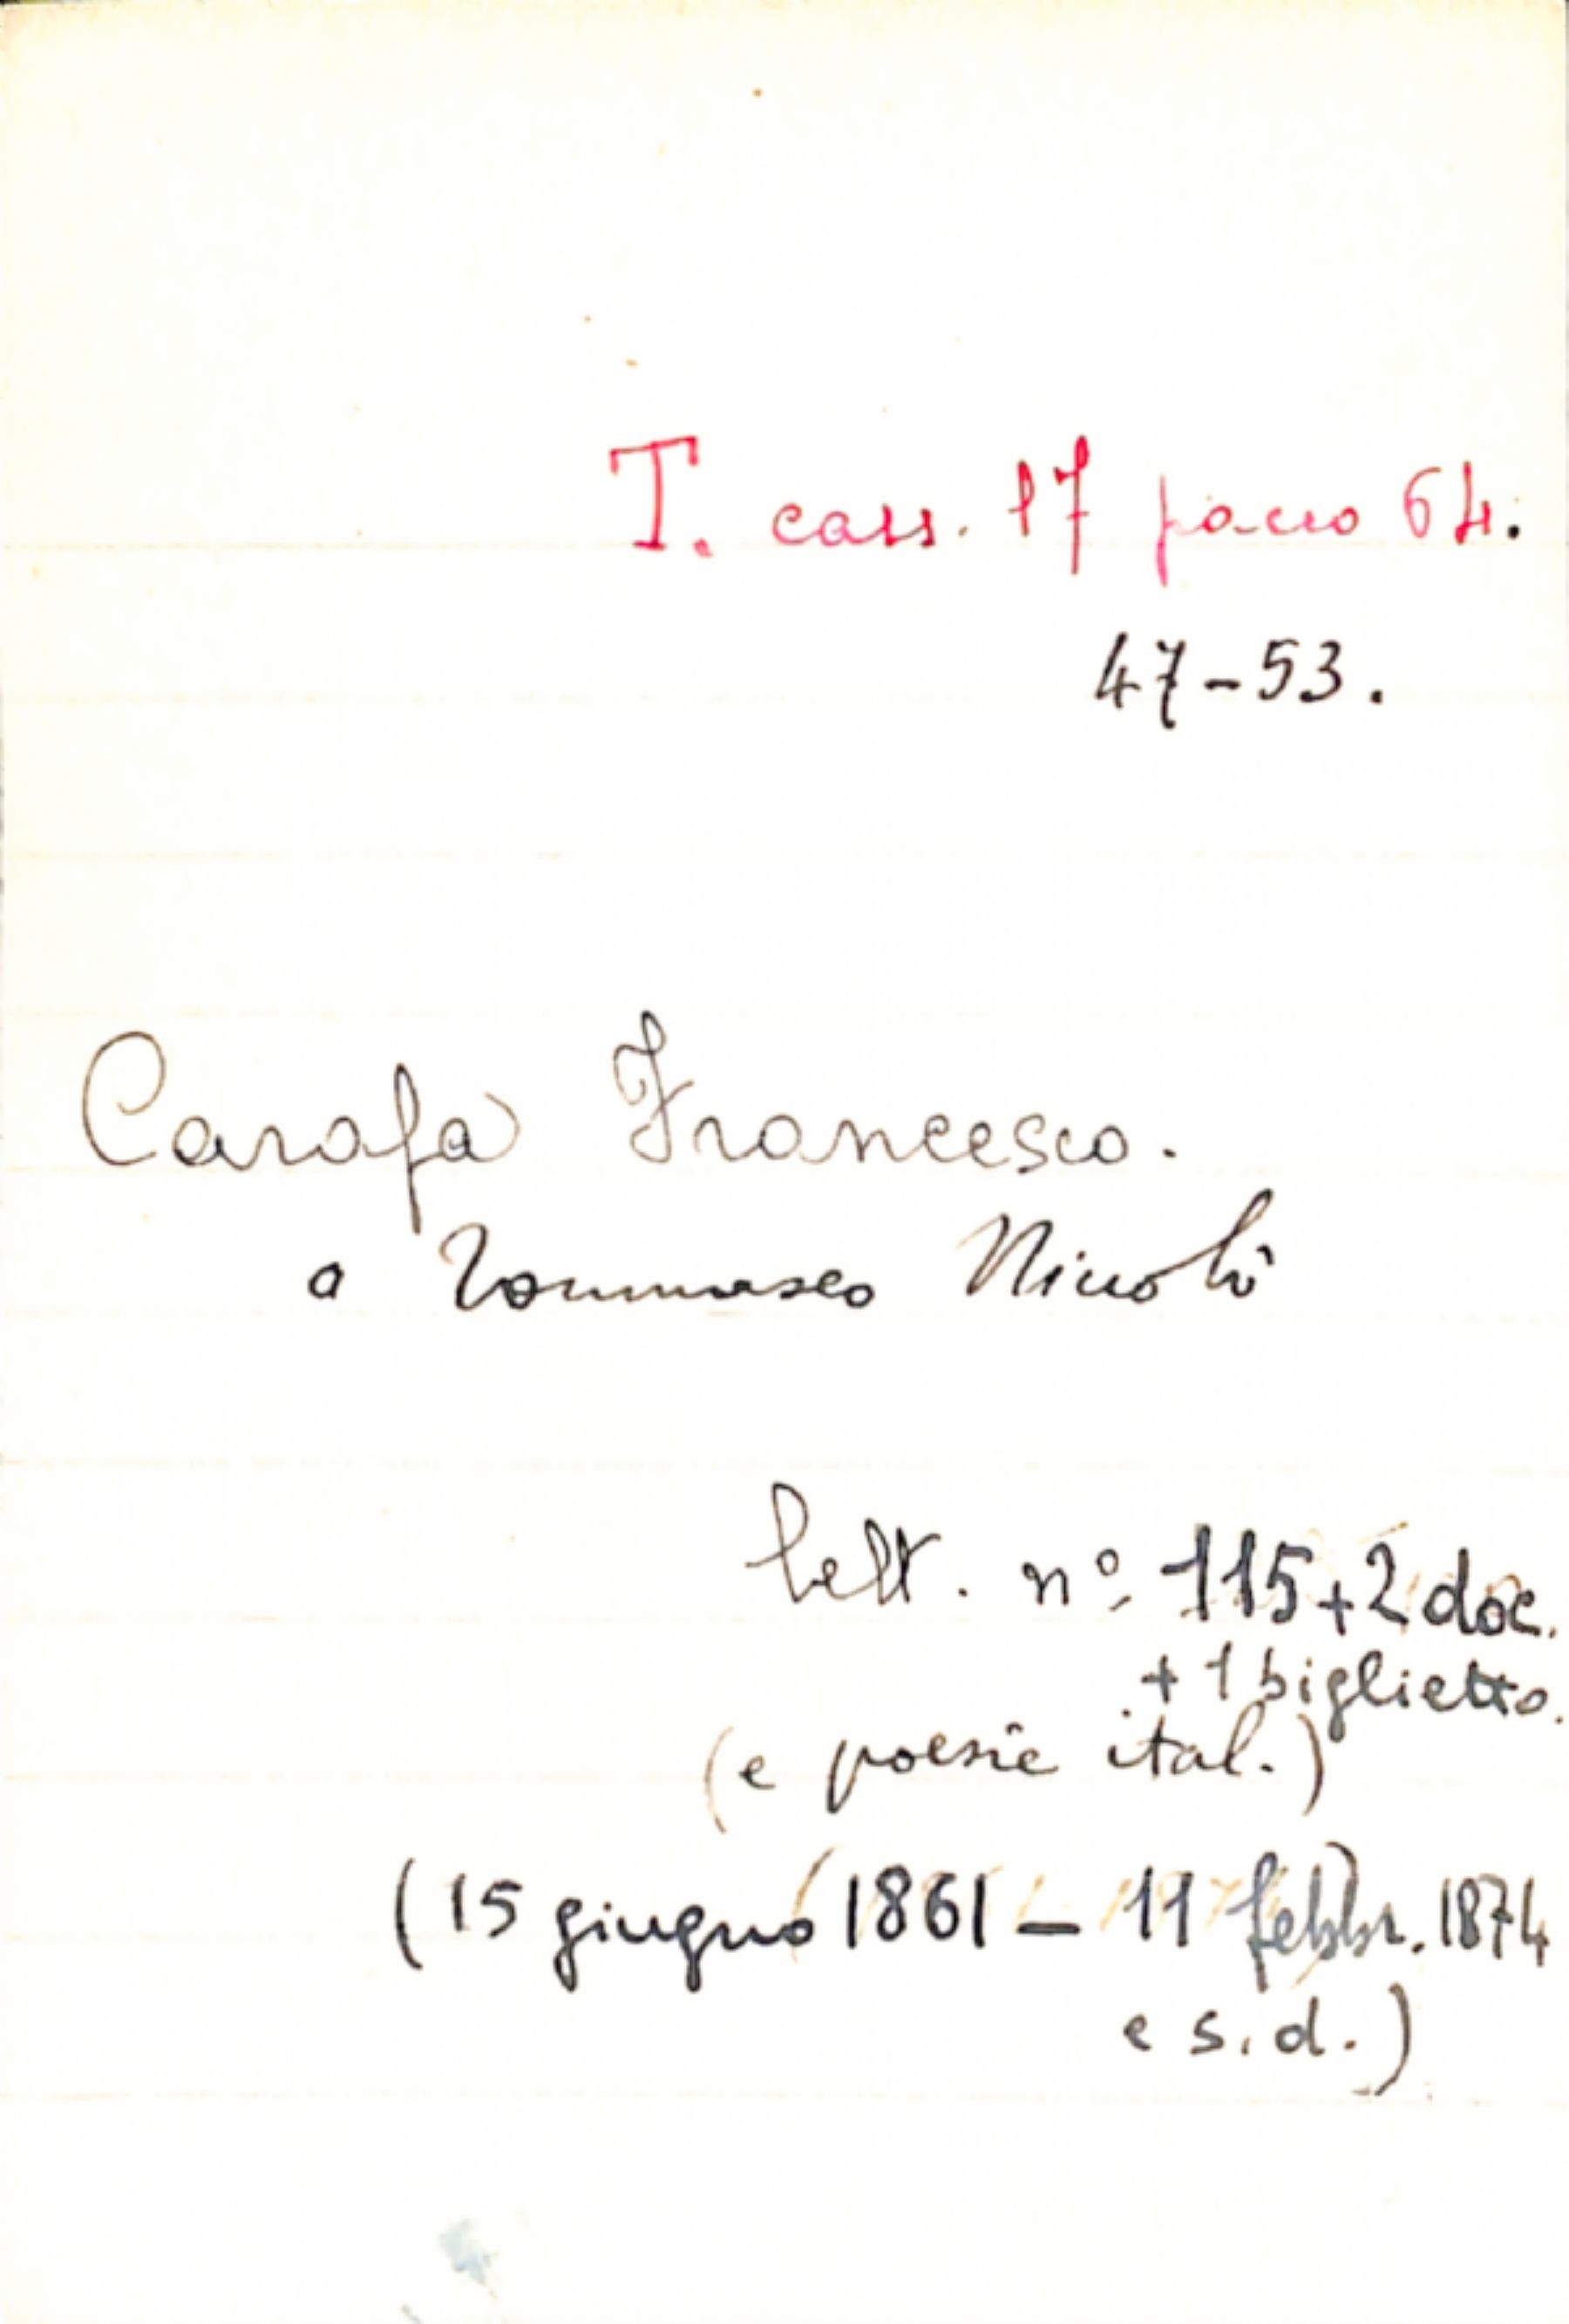 T. cass. 17 pacco 64.
47-53.
Carafa Francesco.
a Tommaseo Niccolò
lett. nº 115+2 doc.
+ 1 biglietto.
(e poesie ital.)
(15 giugno 1861 - 11 febbr. 1874
e s.d.)